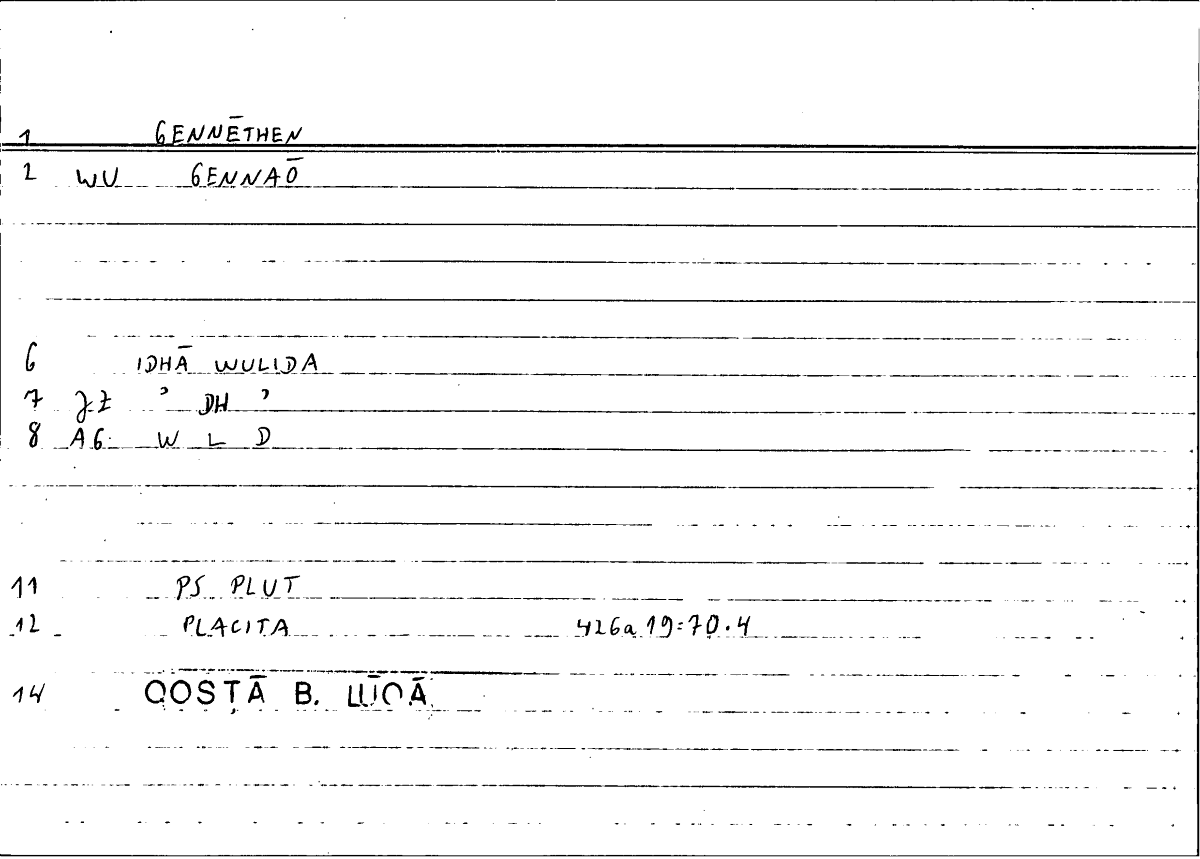 1 GENNĒTHEN
2 WU GENNAŌ
6 IDHĀ WULIDA
7 ʾ DH ʾ
8 AG W L D
11 PS PLUT
12 PLACITA 426a19=70.4
14 QOSṬĀ B. LŪQĀ